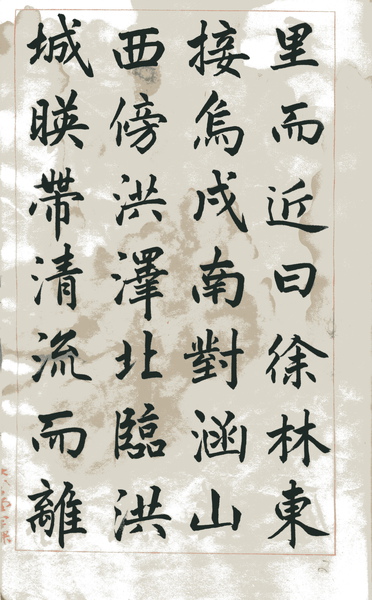 里而近曰徐林東
接烏戍南對涵山
西傍洪澤北臨洪
城暎帶清流而離